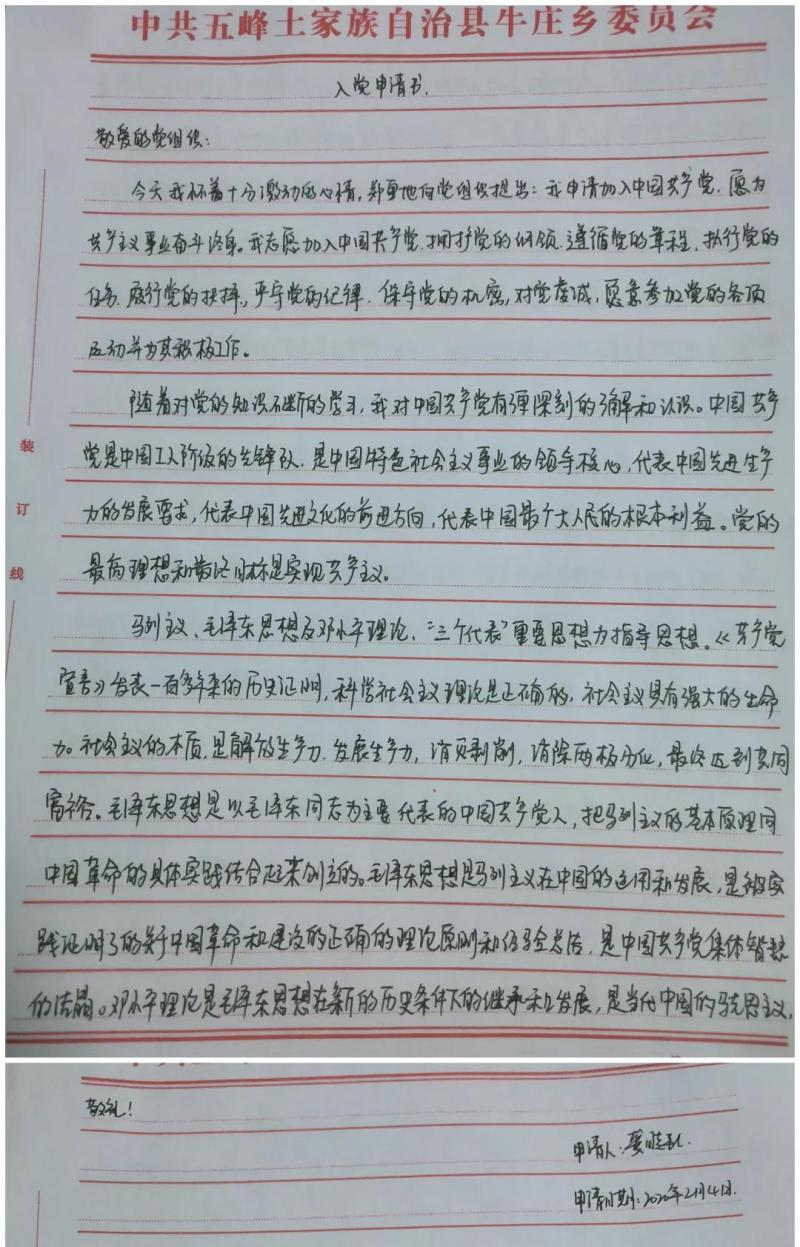 中共五峰土家族自治县牛庄乡委员会
入党申请书.
敬爱的党组织:
今天我怀着十分激动的心情,郑重地向党组织提出:我申请加入中国共产党.愿为
共产主义事业奋斗终身。我志愿加入中国共产党.拥护党的纲领.遵循党的章程.执行党的
任务.履行党的 .严守党的纪律.保守党的机密,对党忠诚,愿意参加党的各项
活动并为其积极工作。
随着对党的知识不断的学习,我对中国共产党有更深刻的了解和认识。中国共产
党是中国工人阶级的先锋队.是中国特色社会主义事业的领导核心,代表中国先进生产
力的发展要求,代表中国先进文化的前进方向,代表中国最广大人民的根本利益。党的
最高理想和最终目标是实现共产主义。
马列主义、毛泽东思想及邓小平理论、“三个代表”重要思想为指导思想。《共产党
宣言》发表一百多年来的历史证明,科学社会主义理论是正确的,社会主义具有强大的生命
力。社会主义的本质,是解放生产力.发展生产力,消灭剥削,消除两极分化,最终达到共同
富裕。毛泽东思想是以毛泽东同志为主要代表的中国共产党人,把马列主义的基本原理同
中国革命的具体实践结合起来创立的。毛泽东思想是马列主义在中国的运用和发展,是被实
践证明了的关于中国革命和建设的正确的理论原则和经验总结,是中国共产党集体智慧
的结晶。邓小平理论是毛泽东思想在新的历史条件下的继承和发展,是当代中国的马克思主义,
装
订
线
敬礼!
申请人:
申请日期:2020年2月4日.